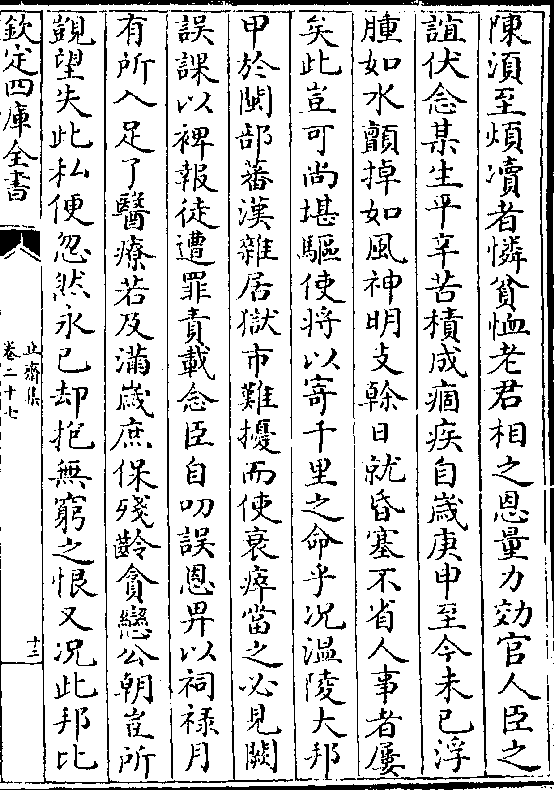 陳湏至煩瀆者憐貧恤老君相之恩量力効官人臣之
誼伏念某生平辛苦積成痼疾自嵗庚申至今未已浮
腫如水顫掉如風神明攴榦日就昏塞不省人事者屢
矣此豈可尚堪驅使将以寄千里之命乎况温陵大邦
甲於閩部蕃漢雜居獄市難擾而使衰瘁當之必見闕
誤課以裨報徒遭罪責載念臣自叨誤恩畀以祠禄月
有所入足了醫療若及滿嵗庶保殘齡貪戀公朝豈所
覬望失此私便忽然永已却抱無窮之恨又况此邦比
欽定四庫全書
止齋集
卷二十七
十三